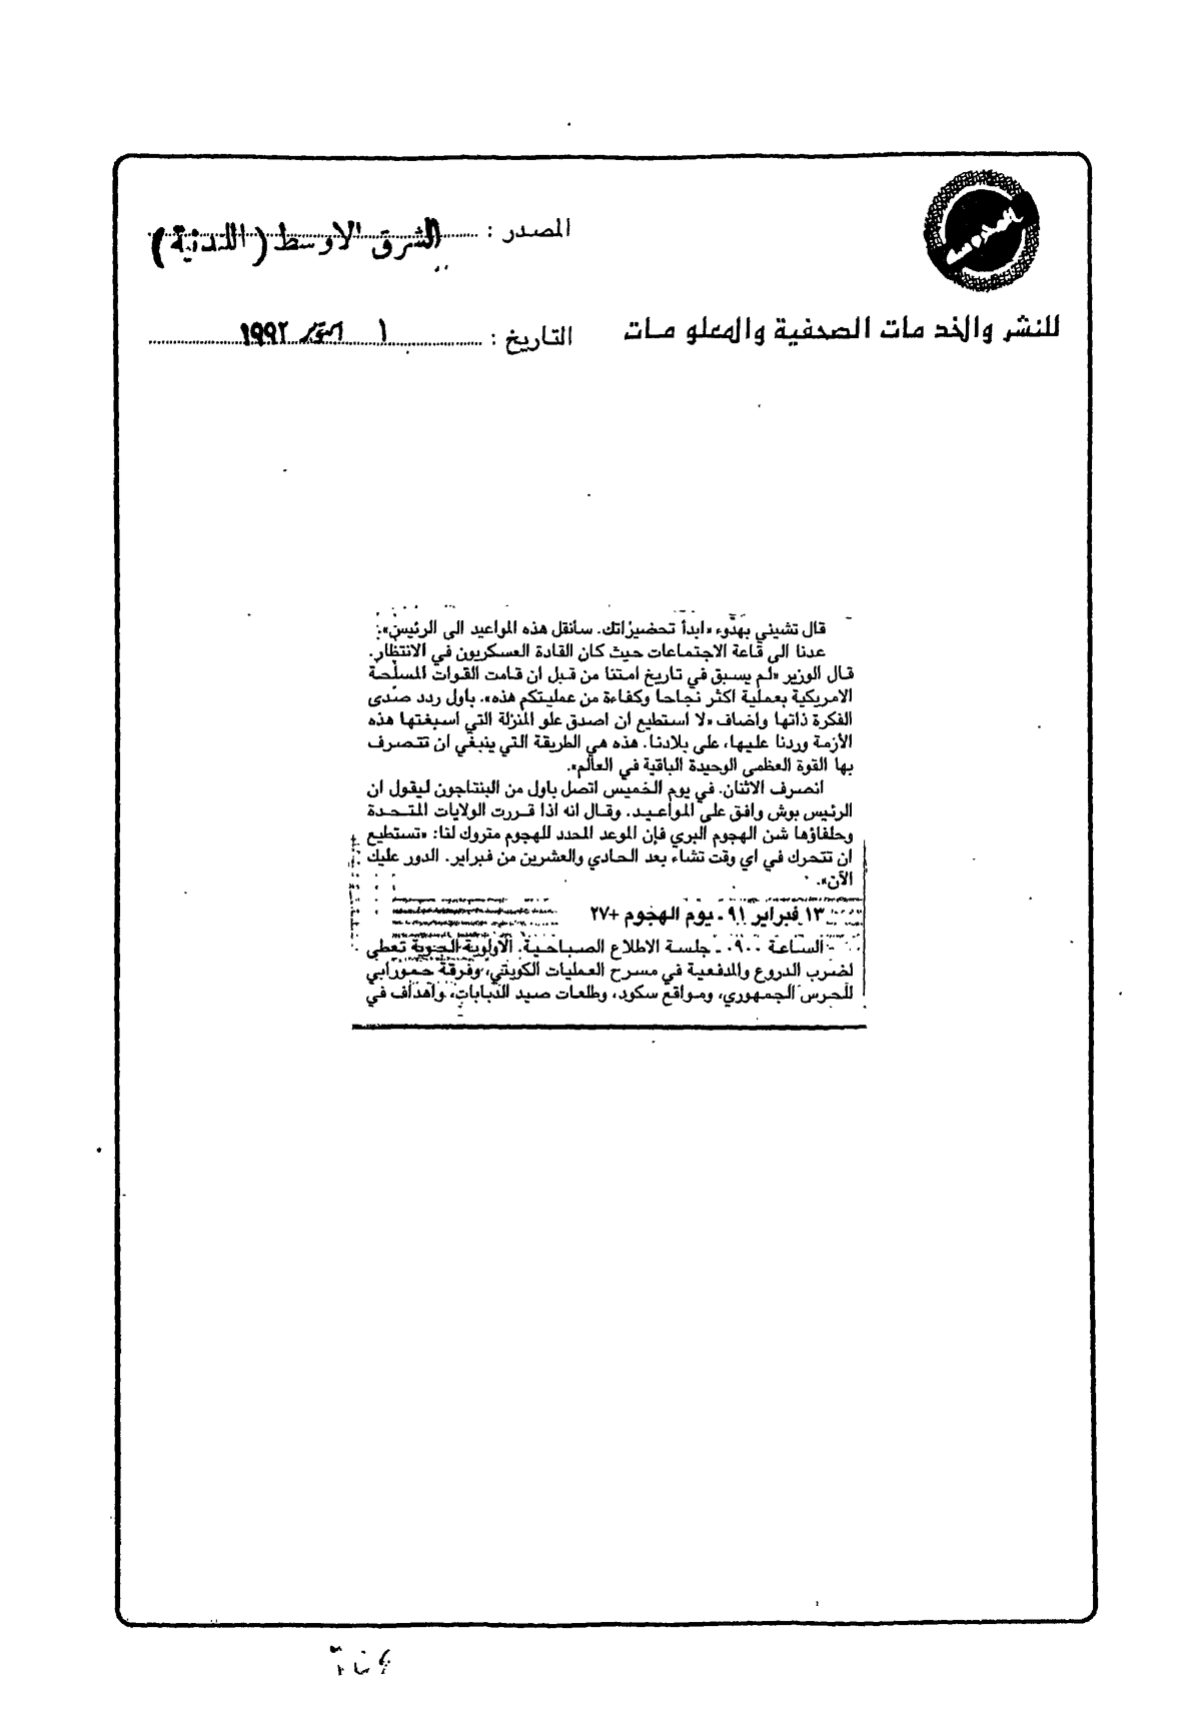 المصدر : الشرق الاوسط (اللندنية)
للنشر والخدمات الصحفية والمعلومات
التاريخ : ١ اكتوبر ١٩٩٢
قال تشيني بهدوء «ابدأ تحضيراتك. سأنقل هذه المواعيد الى الرئيس».
عدنا الى قاعة الاجتماعات حيث كان القادة العسكريون في الانتظار.
قال الوزير «لم يسبق في تاريخ امتنا من قبل ان قامت القوات المسلحة
الامريكية بعملية اكثر نجاحا وكفاءة من عمليتكم هذه». باول ردد صدى
الفكرة ذاتها واضاف «لا استطيع ان اصدق علو المنزلة التي اسبغتها هذه
الأزمة وردنا عليها، على بلادنا. هذه هي الطريقة التي ينبغي ان تتصرف
بها القوة العظمى الوحيدة الباقية في العالم».
انصرف الاثنان. في يوم الخميس اتصل باول من البنتاجون ليقول ان
الرئيس بوش وافق على المواعيد. وقال انه اذا قررت الولايات المتحدة
وحلفاؤها شن الهجوم البري فإن الموعد المحدد للهجوم متروك لنا: «تستطيع
ان تتحرك في اي وقت تشاء بعد الحادي والعشرين من فبراير. الدور عليك
الآن».
١٣ فبراير ٩١ ـ يوم الهجوم +٢٧
الساعة ٠٩٠٠ ـ جلسة الاطلاع الصباحية. الأولوية الجوية تعطى
لضرب الدروع والمدفعية في مسرح العمليات الكويتي، وفرقة حمورابي
للحرس الجمهوري، ومواقع سكود، وطلعات صيد الدبابات، واهداف في